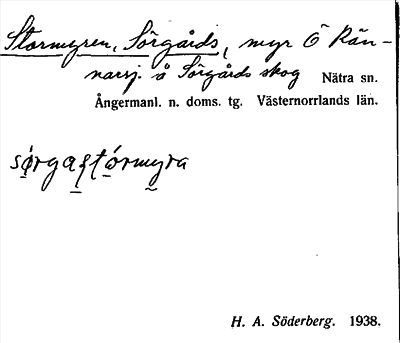 Stormyren, Sörgårds, myr Ö Rän-
narsj. å Sörgårds skog Nätra sn.
Ångermanl. n. doms. tg. Västernorrlands län.
sörgaʃtórmyra
H. A. Söderberg. 1938.